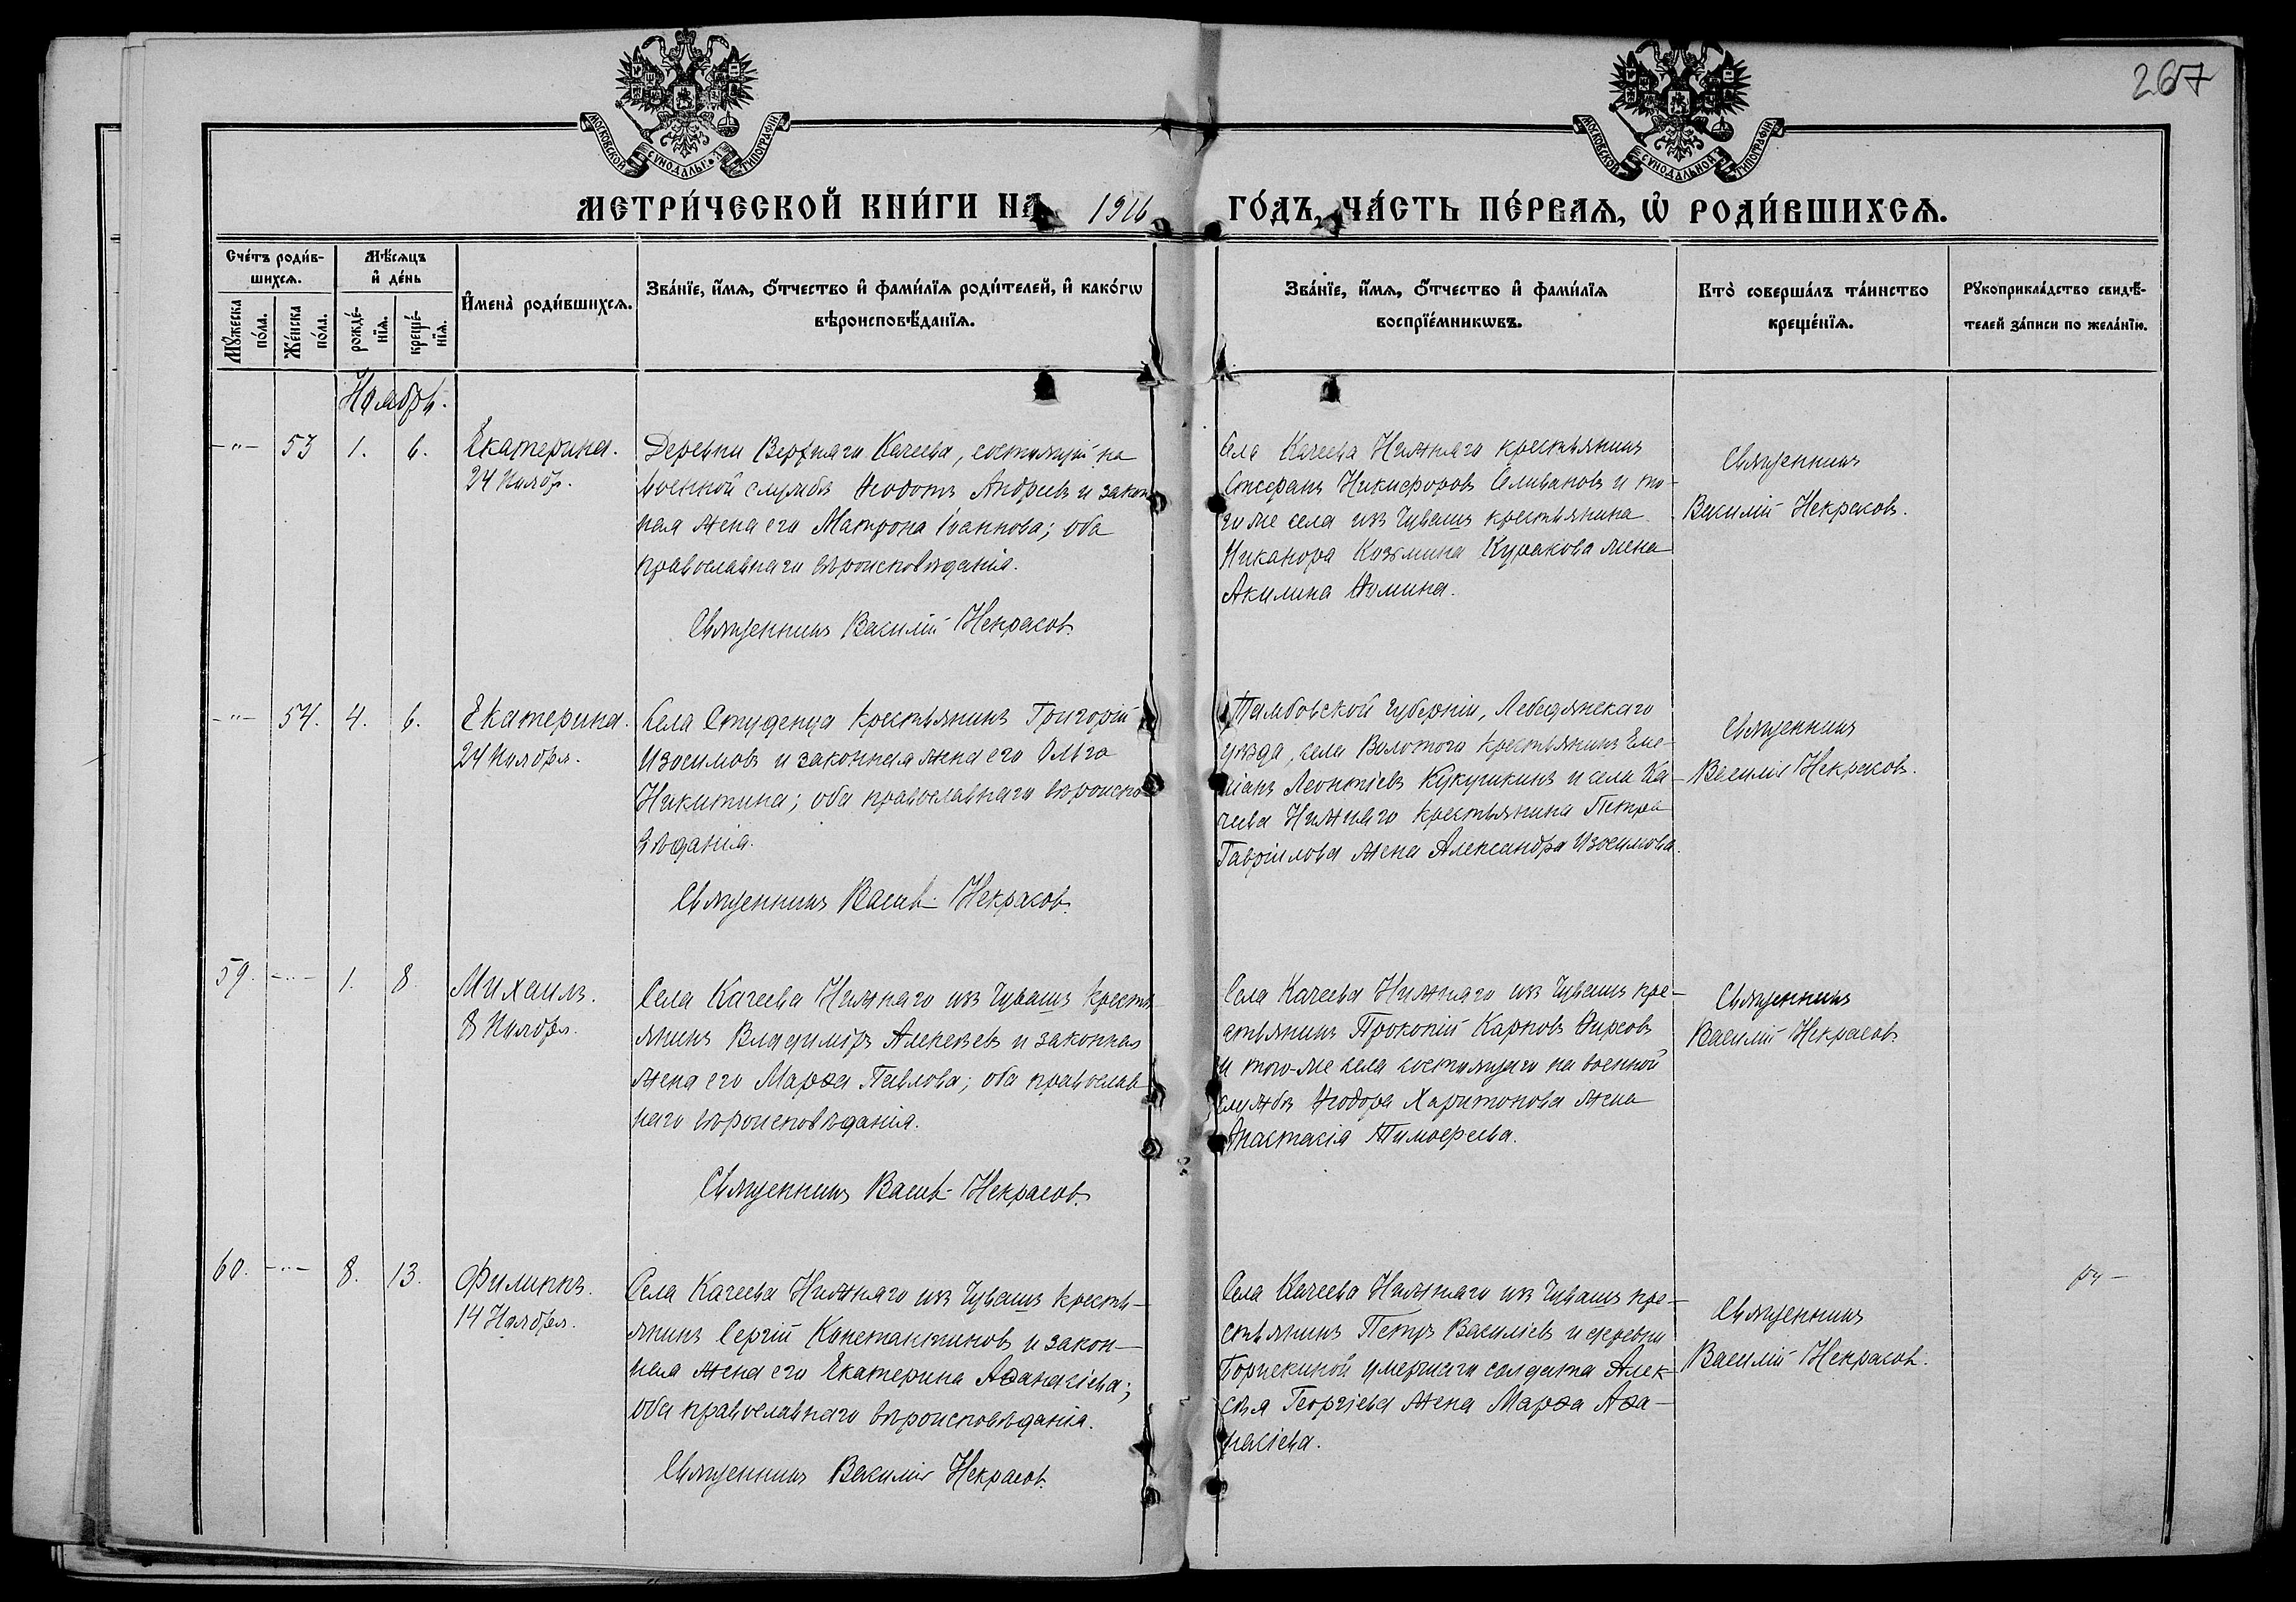 267
МОСКОВСКОЙ СУНОДАЛЬНОЙ ТИПОГРАФІИ
МОСКОВСКОЙ СУНОДАЛЬНОЙ ТИПОГРАФІИ
МЕТРИ́ЧЕСКОЙ КНИ́ГИ НА 1916 ГО́ДЪ, ЧА́СТЬ ПЕ́РВАЯ, Ѡ҆ РОДИ́ВШИХСЯ.
Сче́тъ роди́в-
шихся.
Мꙋ́жеска по́ла.
Же́нска по́ла.
Мѣ́сяцъ
и҆ де́нь
рожде́-
нїя.
креще́-
нїя.
И҆мена̀ роди́вшихся.
Зва́нїе, и҆́мя, ѻ҆́тчество и҆ фами́лїя роди́телей, и҆ како́гѡ
вѣроисповѣ́данїя.
Зва́нїе, и҆́мя, ѻ҆́тчество и҆ фами́лїя
воспрїе́мникѡвъ.
Кто̀ соверша́лъ та́инство
креще́нїя.
Рꙋкоприкла́дство свидѣ́-
телей за́писи по жела́нїю.
Ноябрь.
-"- 53 1. 6.
Екатерина.
24 Ноябр.
Деревни Верхняго Качеева, состоящій на
военной службѣ Ѳеодотъ Андреевъ и закон
ная жена его Матрона Іоаннова; оба
православнаго вѣроисповѣданія.
Священникъ Василій Некрасовъ.
Села Качеева Нижняго крестьянинъ
Стефанъ Никифоровъ Селивановъ и то-
го же села изъ Чувашъ крестьянина
Никанора Козьмина Куракова жена
Акилина Ѳомина.
Священникъ
Василій Некрасовъ.
-"- 54. 4. 6.
Екатерина.
24 Ноября.
Села Студенца крестьянинъ Григорій
Изосимовъ и законная жена его Ольга
Никитина; оба православнаго вѣроиспо
вѣданія.
Священникъ Васил. Некрасовъ.
Тамбовской губерніи, Лебедянскаго
уѣзда, села Волотого крестьянинъ Еме-
ліанъ Леонтіевъ Кукушкинъ и села Ка-
чеева Нижняго крестьянина Петра
Гавріилова жена Александра Изосимова.
Священникъ
Василій Некрасовъ.
59. -"- 1. 8.
Михаилъ.
8 Ноября.
Села Качеева Нижняго изъ Чувашъ кресть
янинъ Владиміръ Алексѣевъ и законная
жена его Марѳа Павлова; оба православ
наго вѣроисповѣданія.
Священникъ Васил. Некрасовъ.
Села Качеева Нижняго изъ Чувашъ кре-
стьянинъ Прокопій Карповъ Ѳирсовъ
и того-же села состоящаго на военной
службѣ Ѳеодора Харитонова жена
Анастасія Тимоѳеева.
Священникъ
Василій Некрасовъ.
60. -"- 8. 13.
Филиппъ.
14 Ноября.
Села Качеева Нижняго изъ Чувашъ кресть-
янинъ Сергій Константиновъ и закон-
ная жена его Екатерина Аѳанасіева;
оба православнаго вѣроисповѣданія.
Священникъ Василій Некрасовъ.
Села Качеева Нижняго изъ Чувашъ кре-
стьянинъ Петръ Василіевъ и деревни
умершаго солдата Алек-
сѣя Георгіева жена Марѳа Аѳа-
насіева.
Священникъ
Василій Некрасовъ.